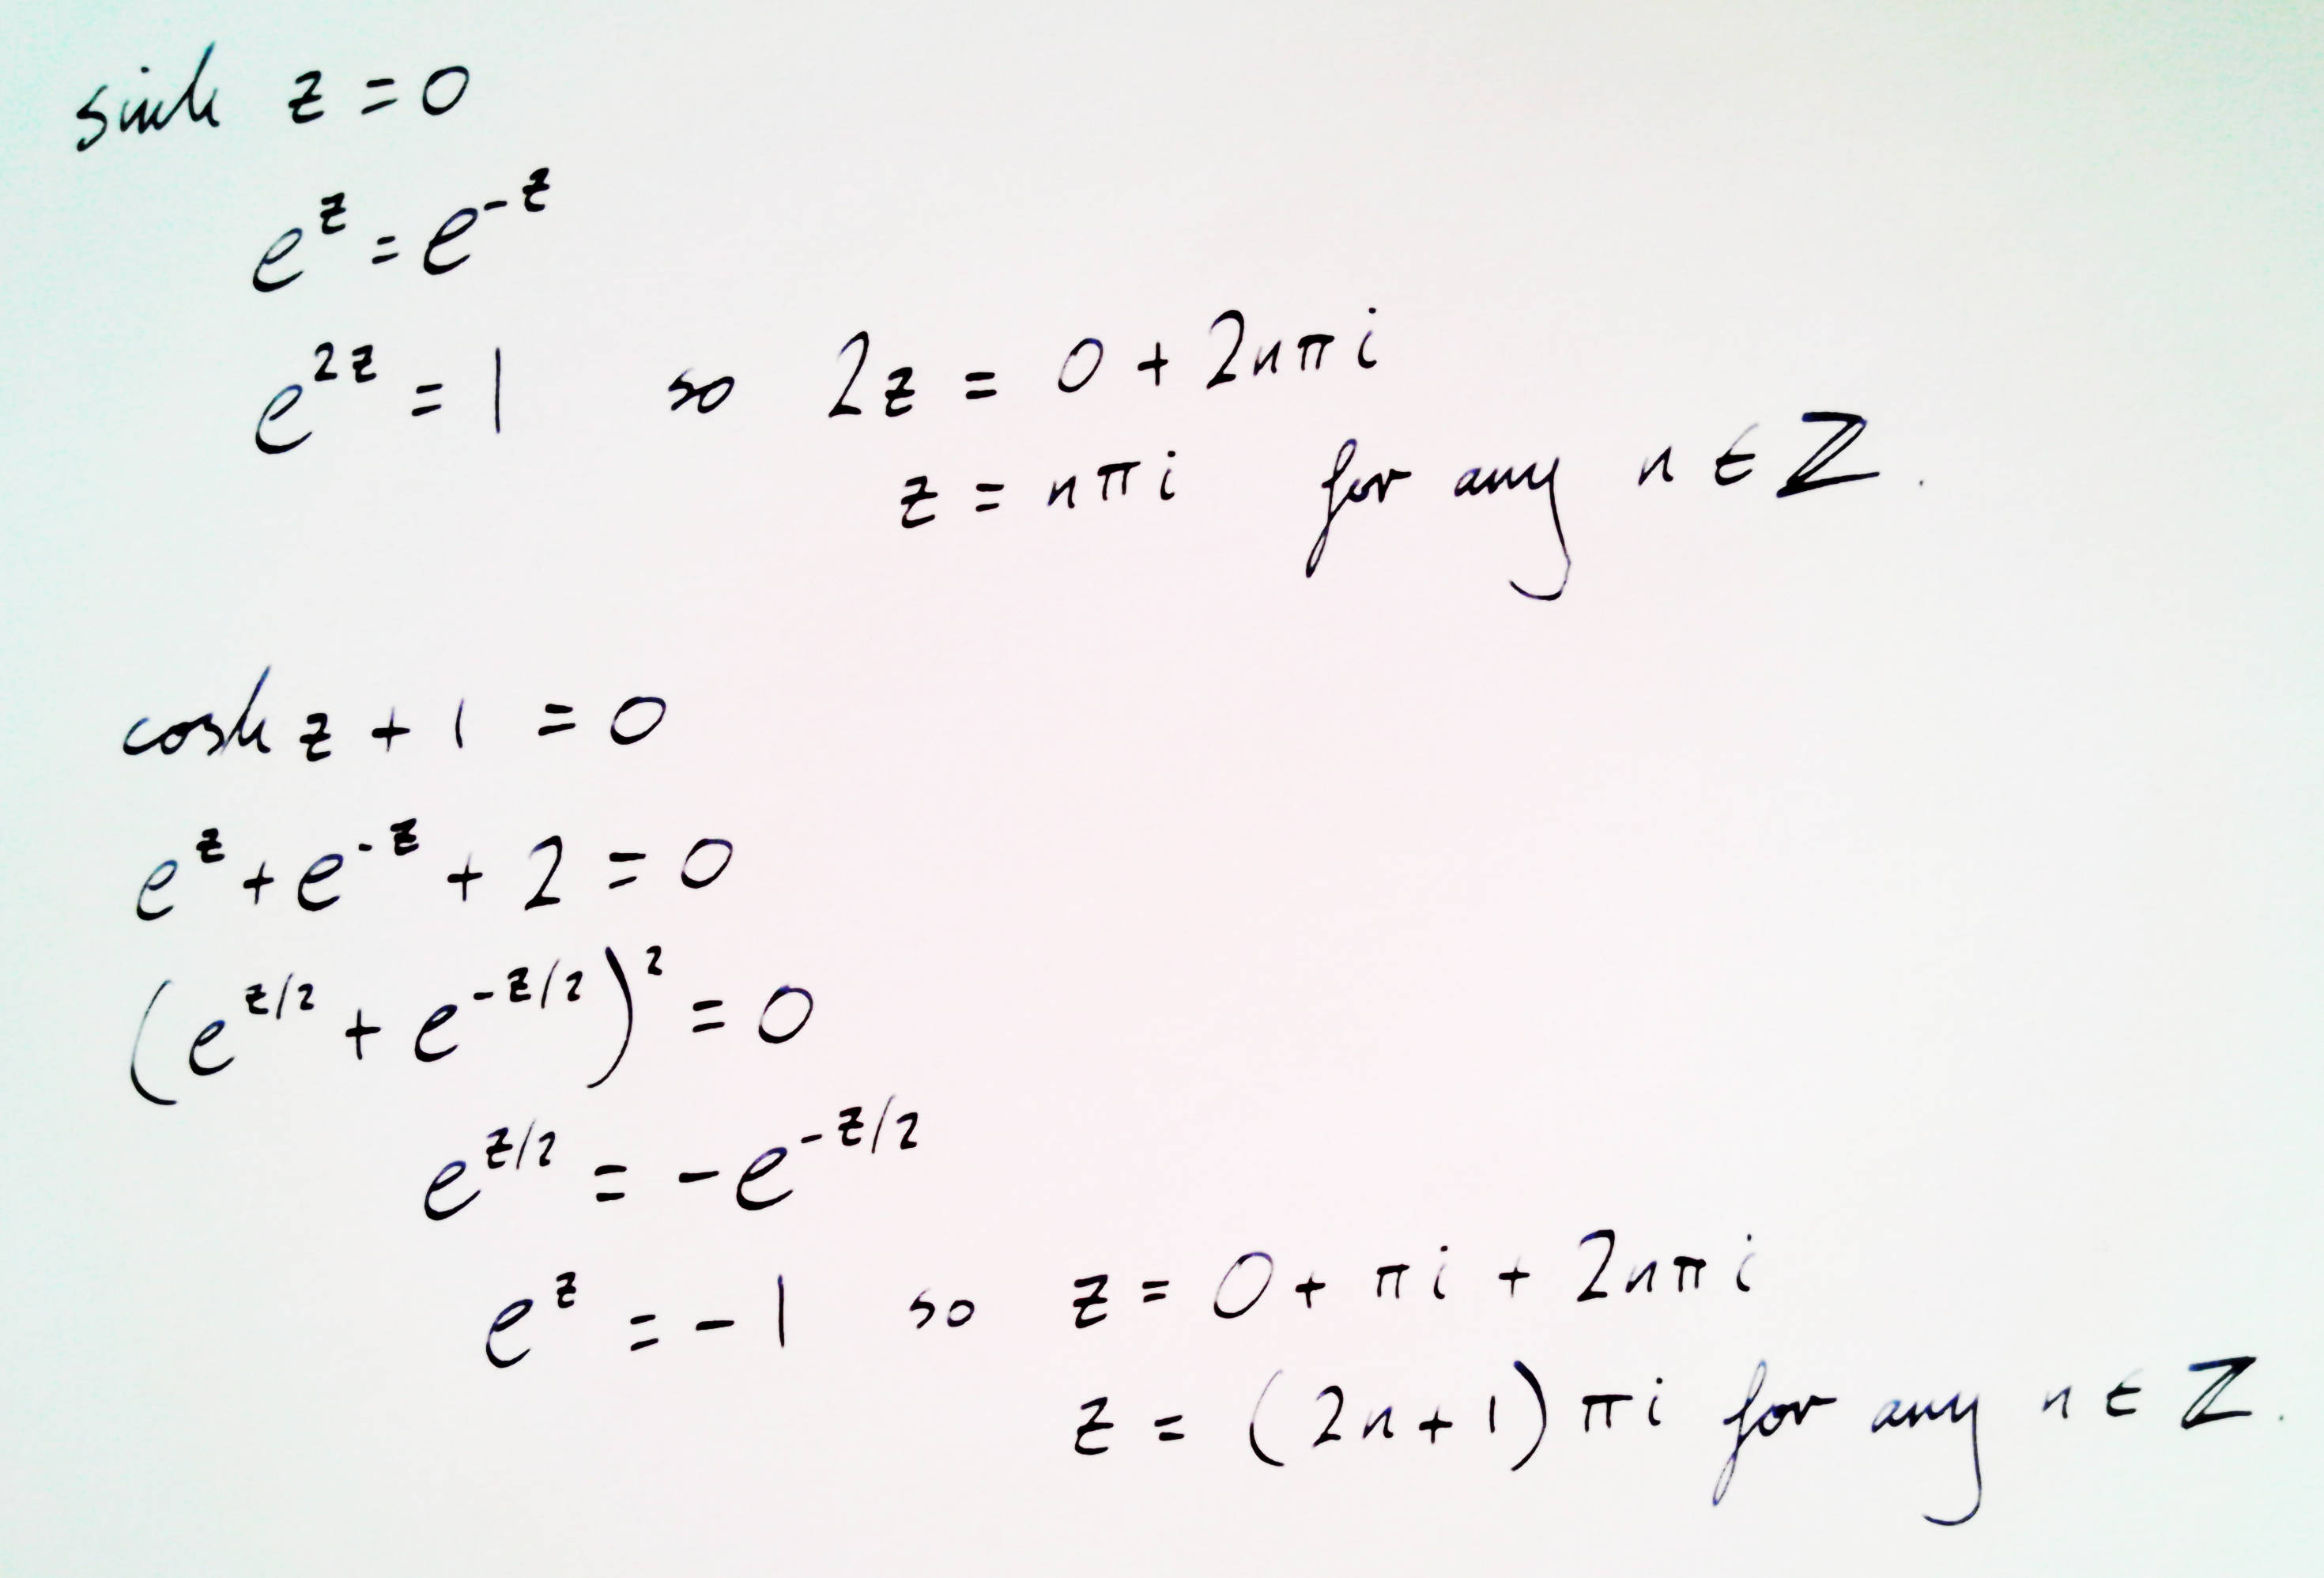 sinh z = 0
e^z = e^{-z}
e^{2z} = 1 so 2z = 0 + 2nπi
z = nπi for any n ∈ ℤ.
cosh z + 1 = 0
e^z + e^{-z} + 2 = 0
(e^{z/2} + e^{-z/2})^2 = 0
e^{z/2} = -e^{-z/2}
e^z = -1 so z = 0 + πi + 2nπi
z = (2n+1)πi for any n ∈ ℤ.